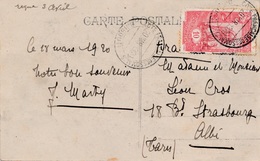 reçue 3 avril
CARTE POSTALE
le 8 mars 1920
notre bon souvenir
J. Martin
Madame et Monsieur
Léon Cros
18 Bd Strasbourg
Albi
(Tarn)